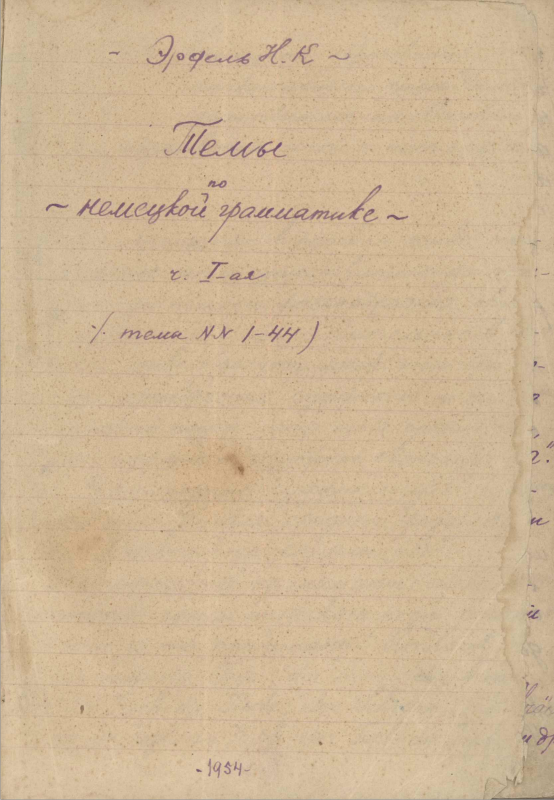 - Эрфель Н.К ~
Темы
по
~ немецкой грамматике ~
ч. I-ая
/. темы NN 1-44)
-1954-